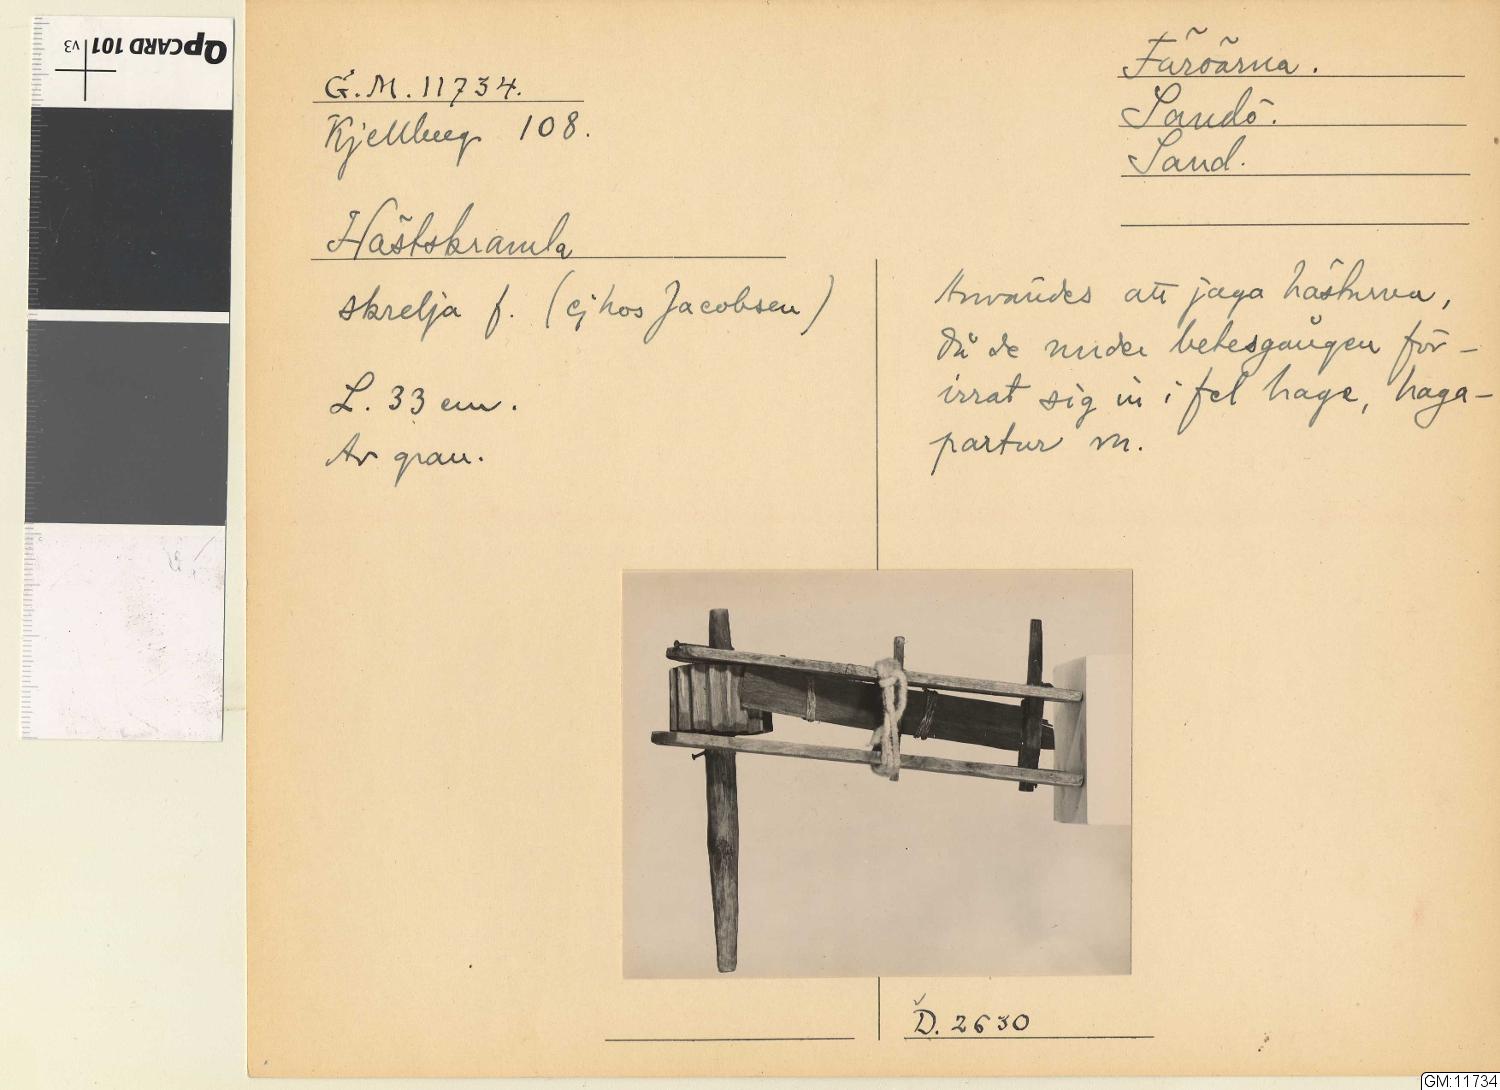 QPCARD 101 v3
G.M. 11734.
Kjellberg 108.
Färöarna.
Sandö.
Sand.
Hästskramla
skrelja f. (ej hos Jacobsen)
L. 33 cm.
Av gran.
Användes att jaga hästarna,
då de under betesgången för-
irrat sig in i fel hage, haga-
partur m.
D. 2630
GM:11734